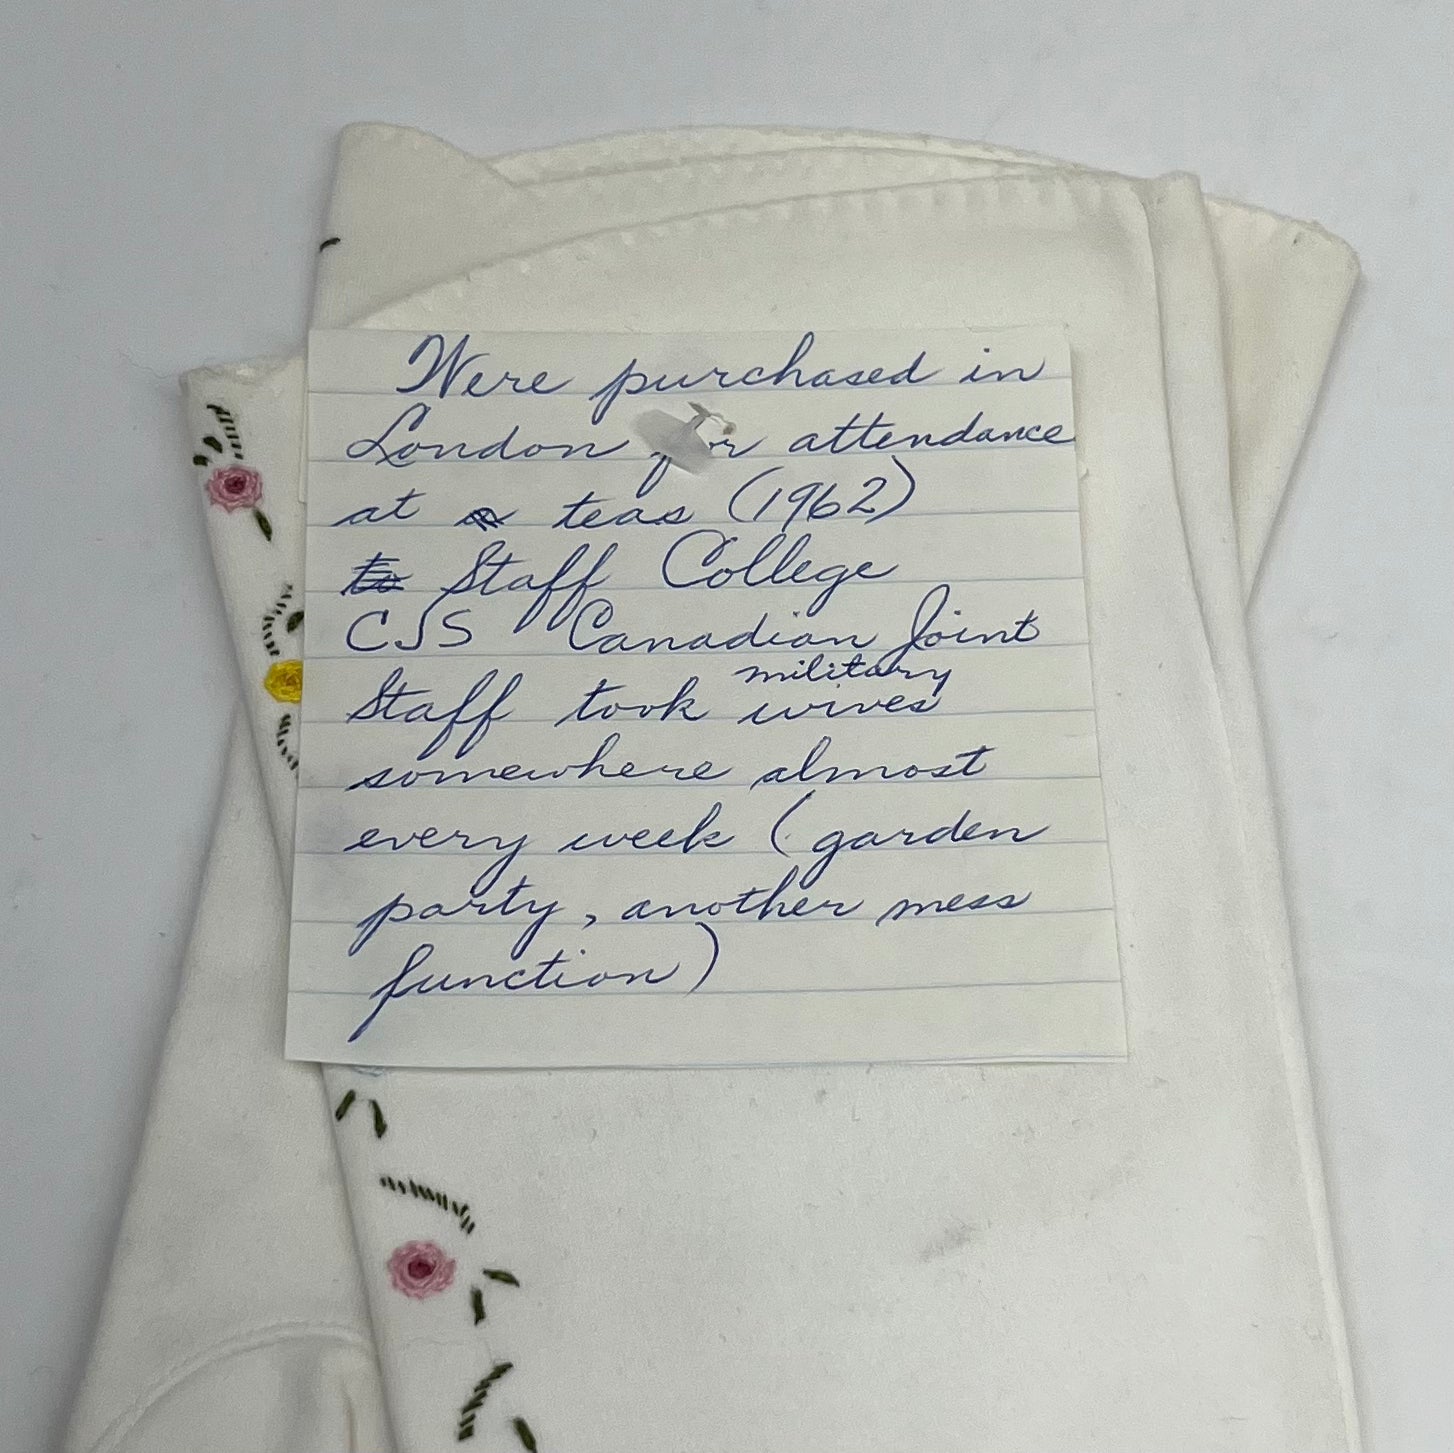 Were purchased in
London for attendance
at a teas (1962)
to Staff College
CJS Canadian Joint
military
Staff took wives
somewhere almost
every week (garden
party, another mess
function)